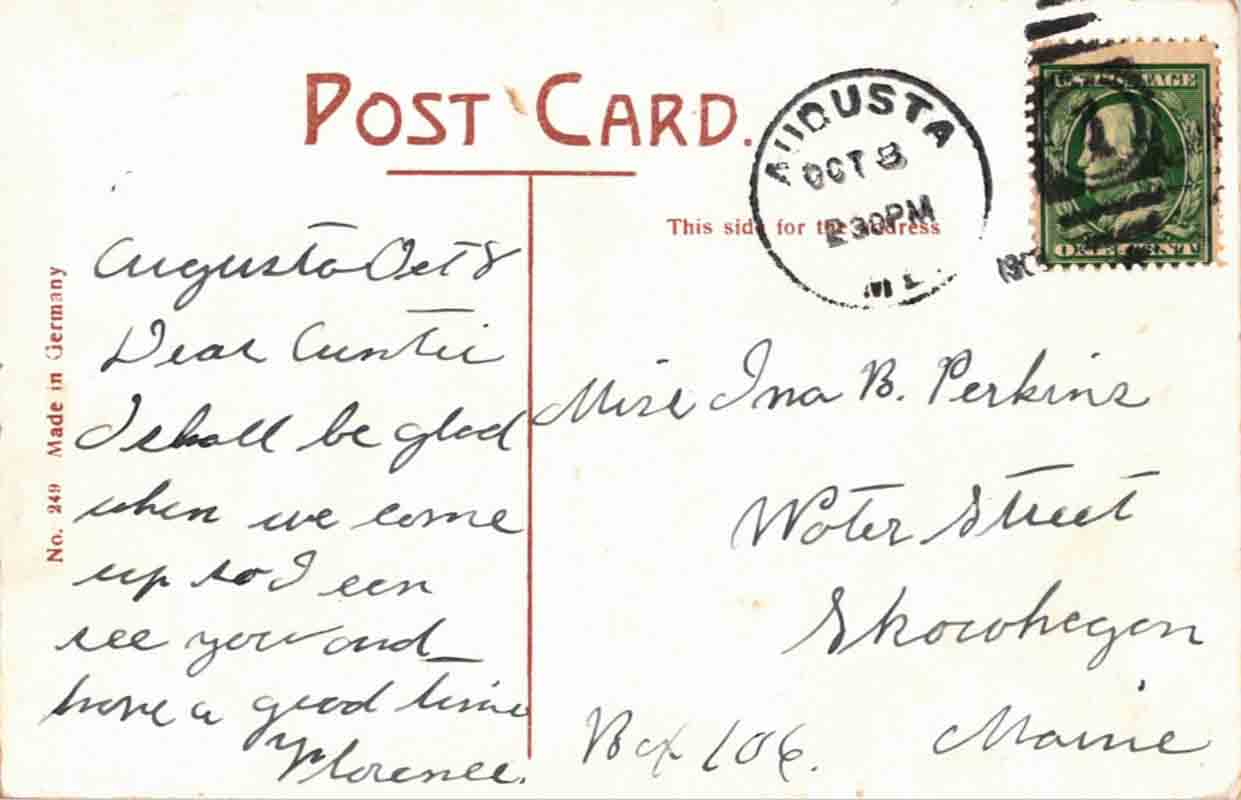 POST CARD.
AUGUSTA
OCT 8
230PM
ME
U.S. POSTAGE
ONE CENT
This side for the address
No. 249 Made in Germany
Augusta Oct 8
Dear Auntie
I shall be glad
when we come
up so I can
see you and
have a good time
Florence.
Miss Ina B. Perkins
Water Street
Skowhegan
Maine
Box 106.